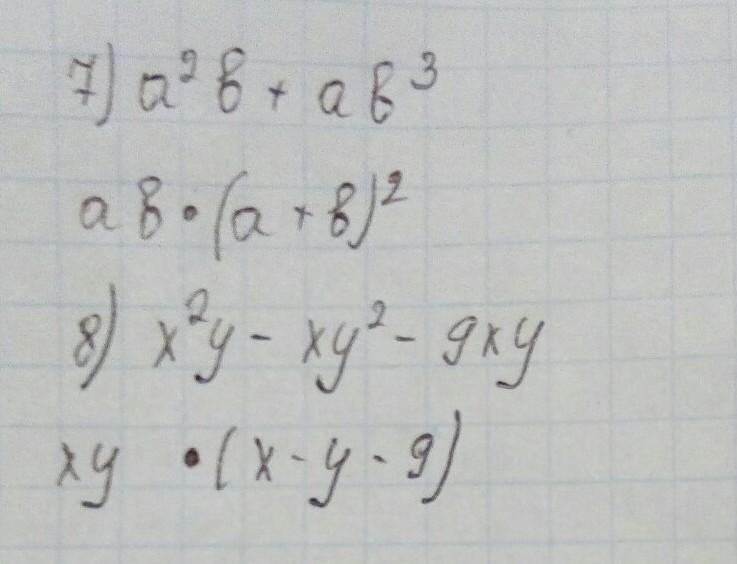 7) a²b + ab³
ab·(a+b)²
8) x²y - xy² - 9xy
xy ·(x-y-9)